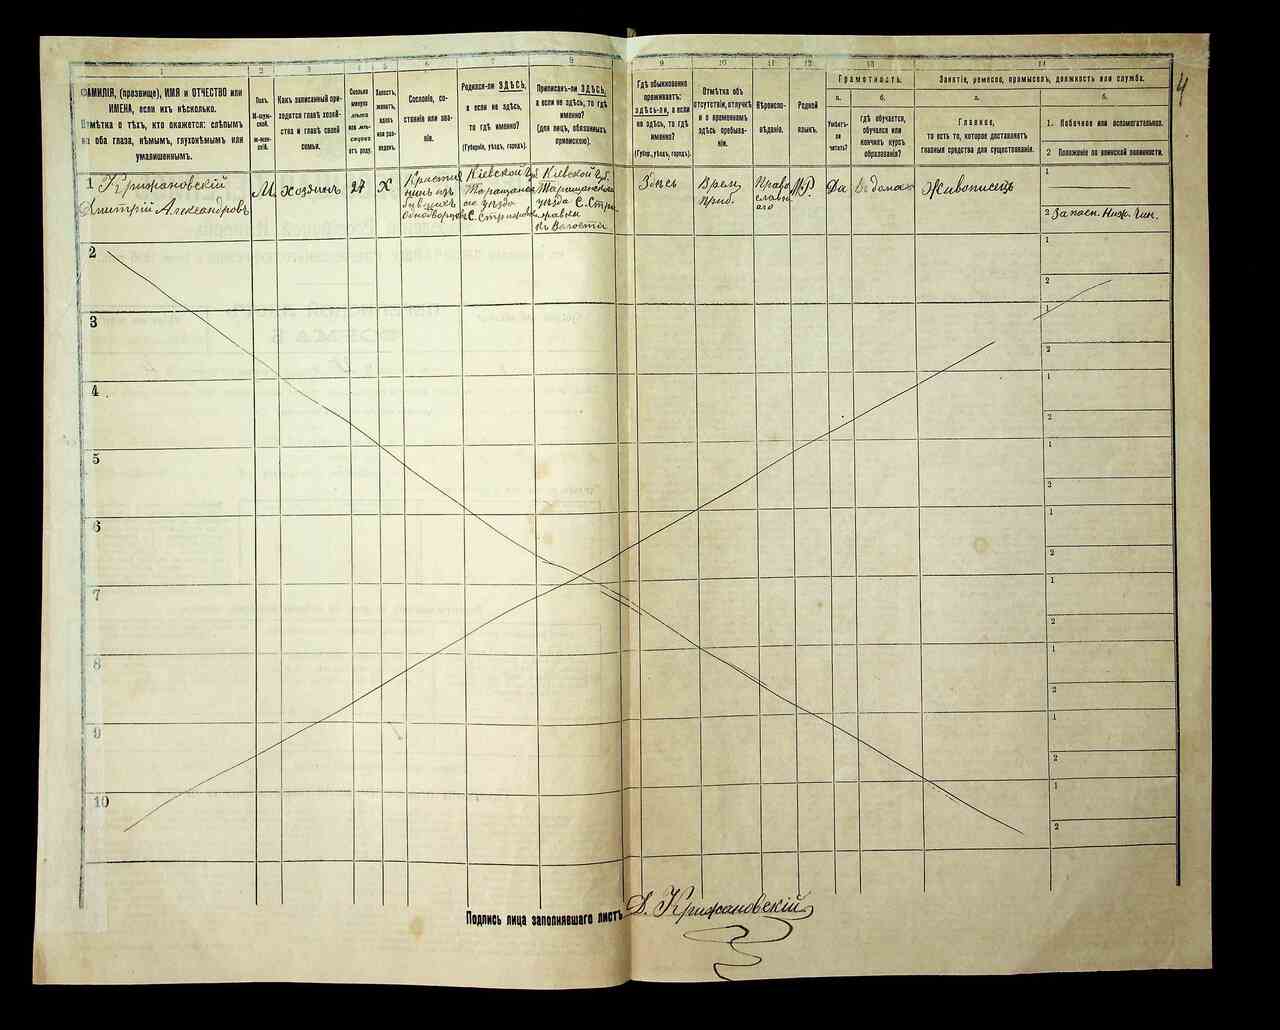 1
2
3
4
5
6
7
8
9
10
11
12
13
14
4
ФАМИЛІЯ, (прозвище), ИМЯ и ОТЧЕСТВО или
ИМЕНА, если ихъ нѣсколько.
Отмѣтка о тѣхъ, кто окажется: слѣпымъ
на оба глаза, нѣмымъ, глухонѣмымъ или
умалишеннымъ.
Полъ.
М-муж-
ской.
Ж-жен-
скій.
Какъ записанный при-
ходится главѣ хозяй-
ства и главѣ своей
семьи.
Сколько
минуло
лѣтъ
или мѣ-
сяцевъ
отъ роду.
Холостъ,
женатъ,
вдовъ
или раз-
веденъ.
Сословіе, со-
стояніе или зва-
ніе.
Родился-ли ЗДѢСЬ,
а если не здѣсь,
то гдѣ именно?
(Губернія, уѣздъ, городъ).
Приписанъ-ли ЗДѢСЬ,
а если не здѣсь, то гдѣ
именно?
(для лицъ, обязанныхъ
припискою).
Гдѣ обыкновенно
проживаетъ:
здѣсь-ли, а если
не здѣсь, то гдѣ
именно?
(Губерн., уѣздъ, городъ).
Отмѣтка объ
отсутствіи, отлучкѣ
и о временномъ
здѣсь пребыва-
ніи.
Вѣроиспо-
вѣданіе.
Родной
языкъ.
Грамотность.
а.
Умѣетъ-
ли
читать?
б.
Гдѣ обучается,
обучался или
кончилъ курсъ
образованія?
Занятіе, ремесло, промыселъ, должность или служба.
а.
Главное,
то есть то, которое доставляетъ
главныя средства для существованія.
б.
1. Побочное или вспомогательное.
2 Положеніе по воинской повинности.
1 Крижановскій
Дмитрій Александровъ
М
хозяинъ
27
Х
Крестья
нинъ изъ
бывшихъ
Однодворцевъ
Кіевской Губ.
Таращанска
го уѣзда
Кіевской Губ.
Таращанскаго
уѣзда
Здѣсь
Врем.
Преб.
Право
славн
аго
Да
Дома
Живописецъ
1
2 Запасн. Ниж. Чин.
2
1
2
3
1
2
4
1
2
5
1
2
6
1
2
7
1
2
8
1
2
9
1
2
10
1
2
Подпись лица заполнявшаго листъ
Д. Крижановскій